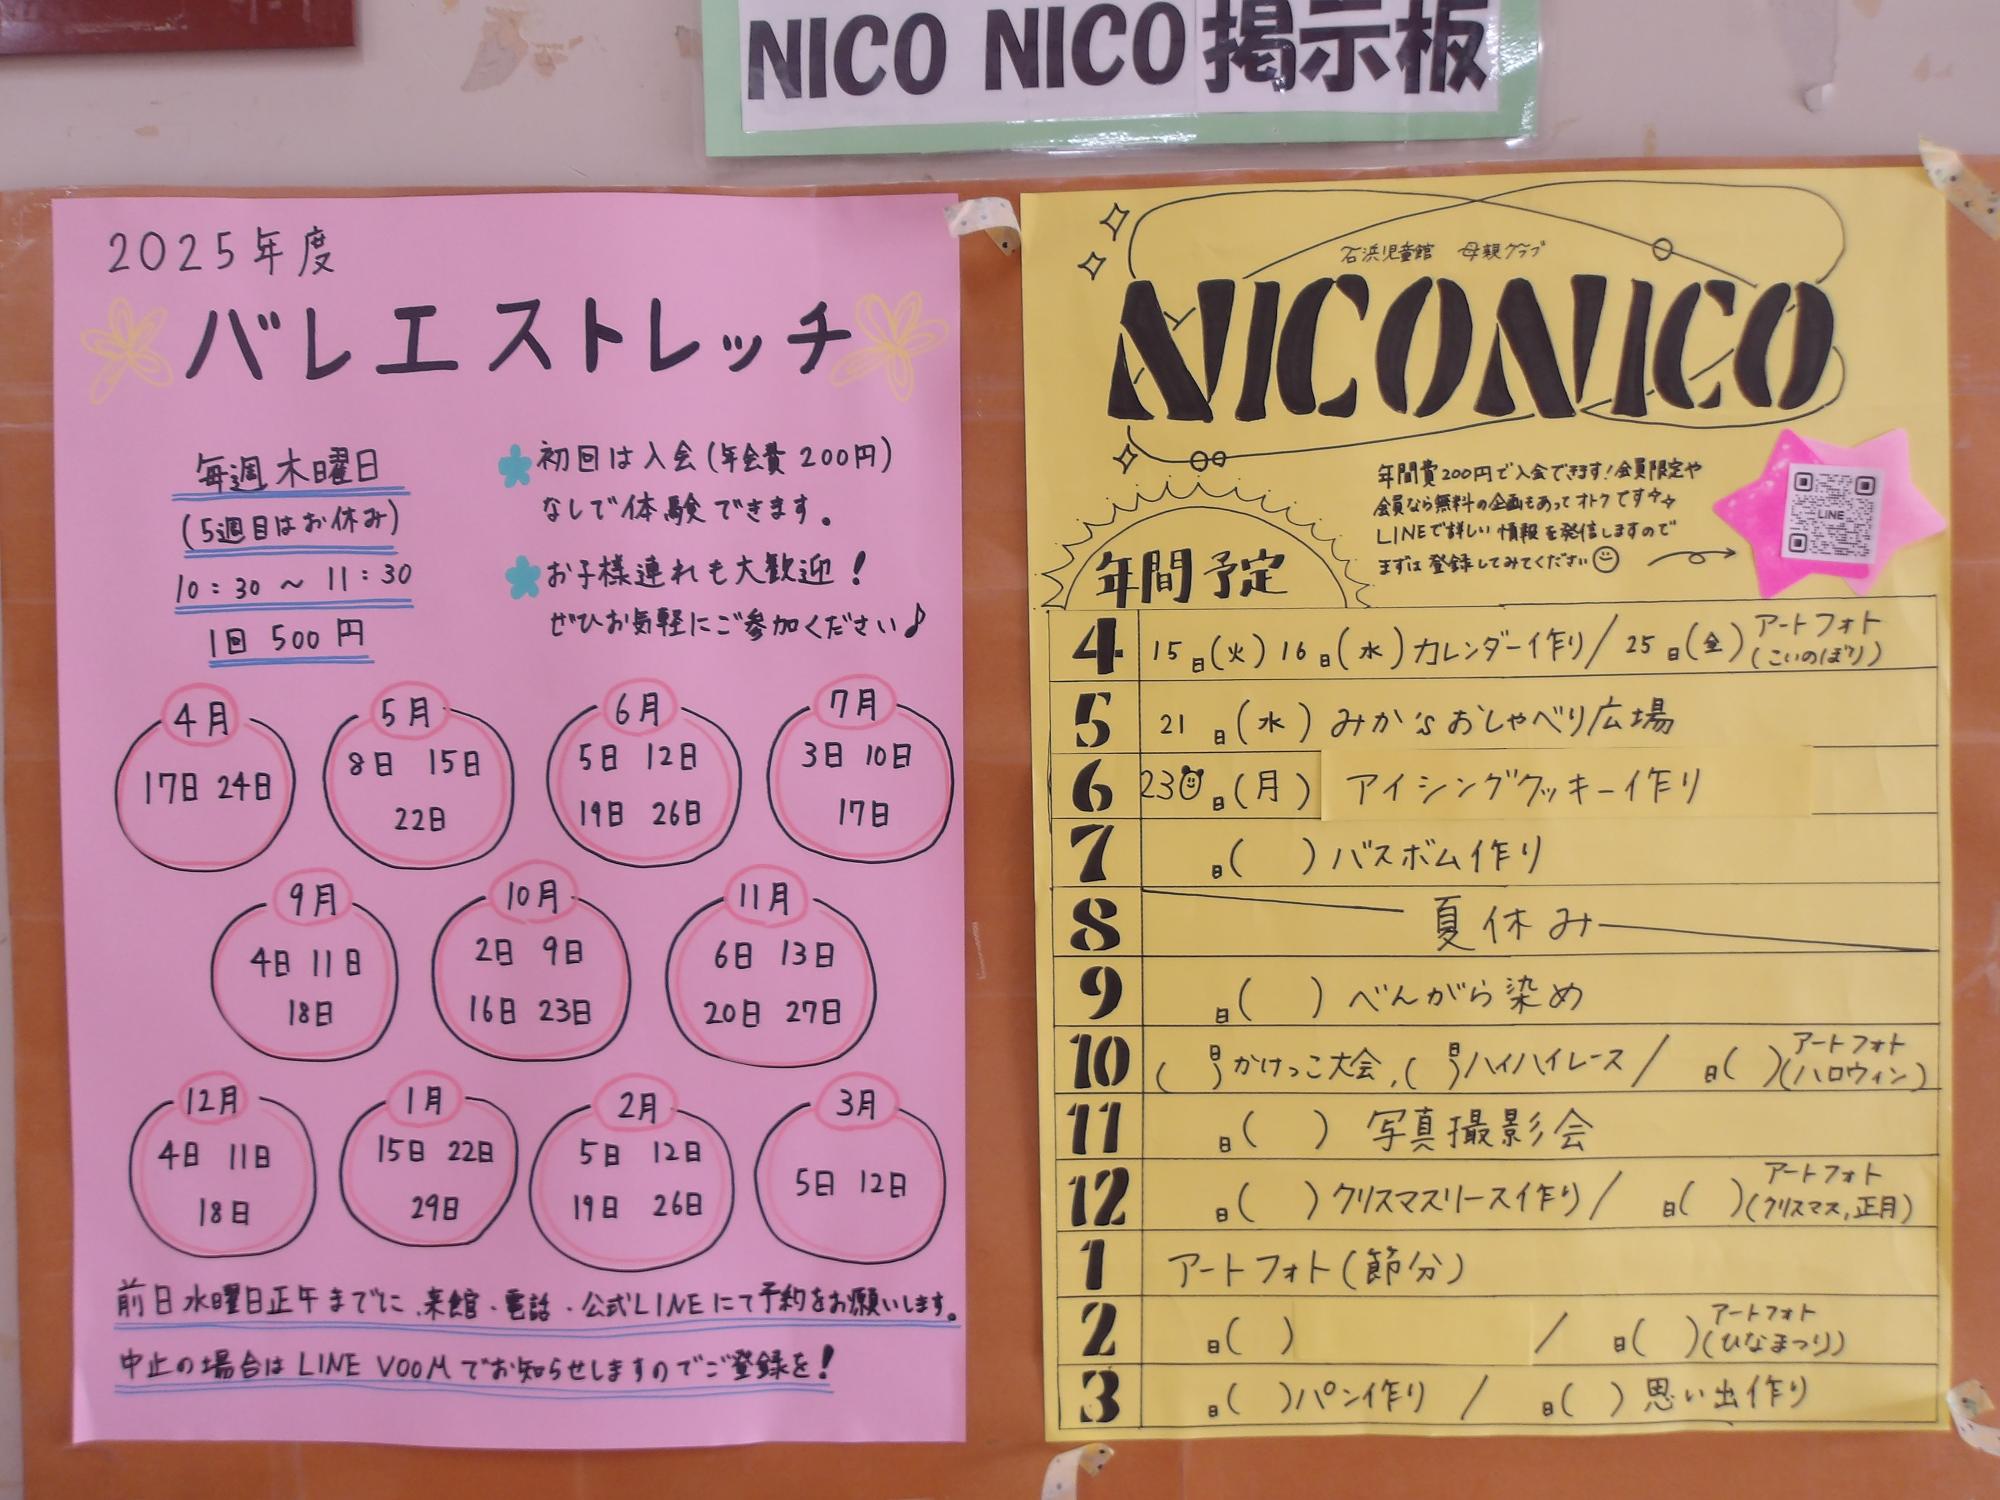 NICO NICO 掲示板
2025年度
バレエストレッチ
毎週木曜日
(5週目はお休み)
10:30 ～ 11:30
1回 500円
初回は入会(年会費200円)
なしで体験できます。
お子様連れも大歓迎!
ぜひお気軽にご参加ください♪
4月
17日 24日
5月
8日 15日
22日
6月
5日 12日
19日 26日
7月
3日 10日
17日
9月
4日 11日
18日
10月
2日 9日
16日 23日
11月
6日 13日
20日 27日
12月
4日 11日
18日
1月
15日 22日
29日
2月
5日 12日
19日 26日
3月
5日 12日
前日水曜日正午までに、来館・電話・公式LINEにて予約をお願いします。
中止の場合は LINE VOOMでお知らせしますのでご登録を!
石浜児童館 母親クラブ
NICONICO
年間費200円で入会できます!会員限定や
会員なら無料の企画もあってオトクです
LINEで詳しい情報を発信しますので
まずは登録してみてください
LINE
年間予定
4 15日(火)16日(水)カレンダー作り/25日(金)アートフォト(こいのぼり)
5 21日(水)みか'sおしゃべり広場
6 23日(月)アイシングクッキー作り
7 日( )バスボム作り
8 夏休み
9 日( )べんがら染め
10 ( 日)かけっこ大会,( 日)ハイハイレース/ 日( )アートフォト(ハロウィン)
11 日( )写真撮影会
12 日( )クリスマスリース作り/ 日( )アートフォト(クリスマス,正月)
1 アートフォト(節分)
2 日( ) / 日( )アートフォト(ひなまつり)
3 日( )パン作り / 日( )思い出作り